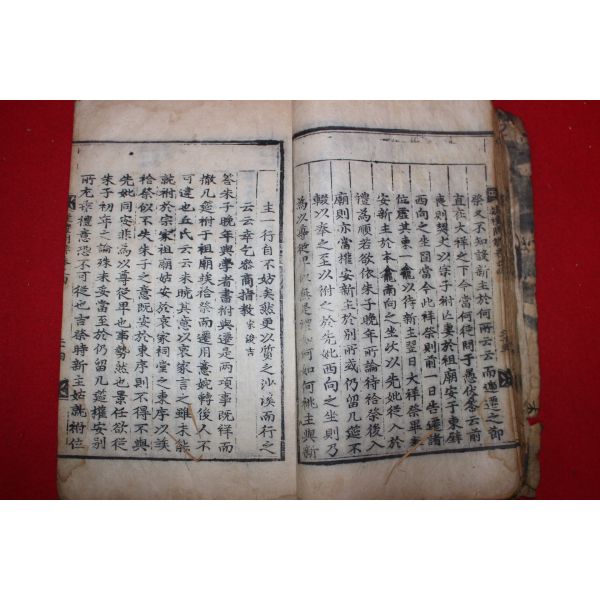 祭又不知設新主於何所云云而遷之節
直在大祥之下今當何從問于愚伏答云前
喪則禫之以宗子祔於祖廟安于東壁
西向之坐圖當今此祥祭則前一日告遷諸
位虛其東一龕以待新主翌日大祥祭畢
安新主於本龕南向之坐以先妣從入於
禮爲順若欲依朱子晩年所論待給祭後入
廟則亦當權安新主於別所或仍留几筵不
輟以奉之至以祔之於先妣西向之坐則乃
爲以尊從卑 何如何祧主與新
主一行自不姑矣然更以質之沙溪而行之
云云幸乞參商指教 宋浚吉
答朱子晩年與學者書祔與遷是兩項事旣祥而
撤几筵祔于祖廟俟祫祭而遷用意婉轉後人不
可違也丘氏云云未曉其意以哀家言之雖未能
就祔於宗家祖廟姑安於哀家祠堂之東序以俟
祫祭似不失朱子之意旣安於東序則不得不與
先妣同安非爲以尊從卑也事勢然也景任欲從
朱子初年之論殊未妥當至於仍留几筵權安別
所尤乖禮意恐不可從也吉祭時新主姑就祔位